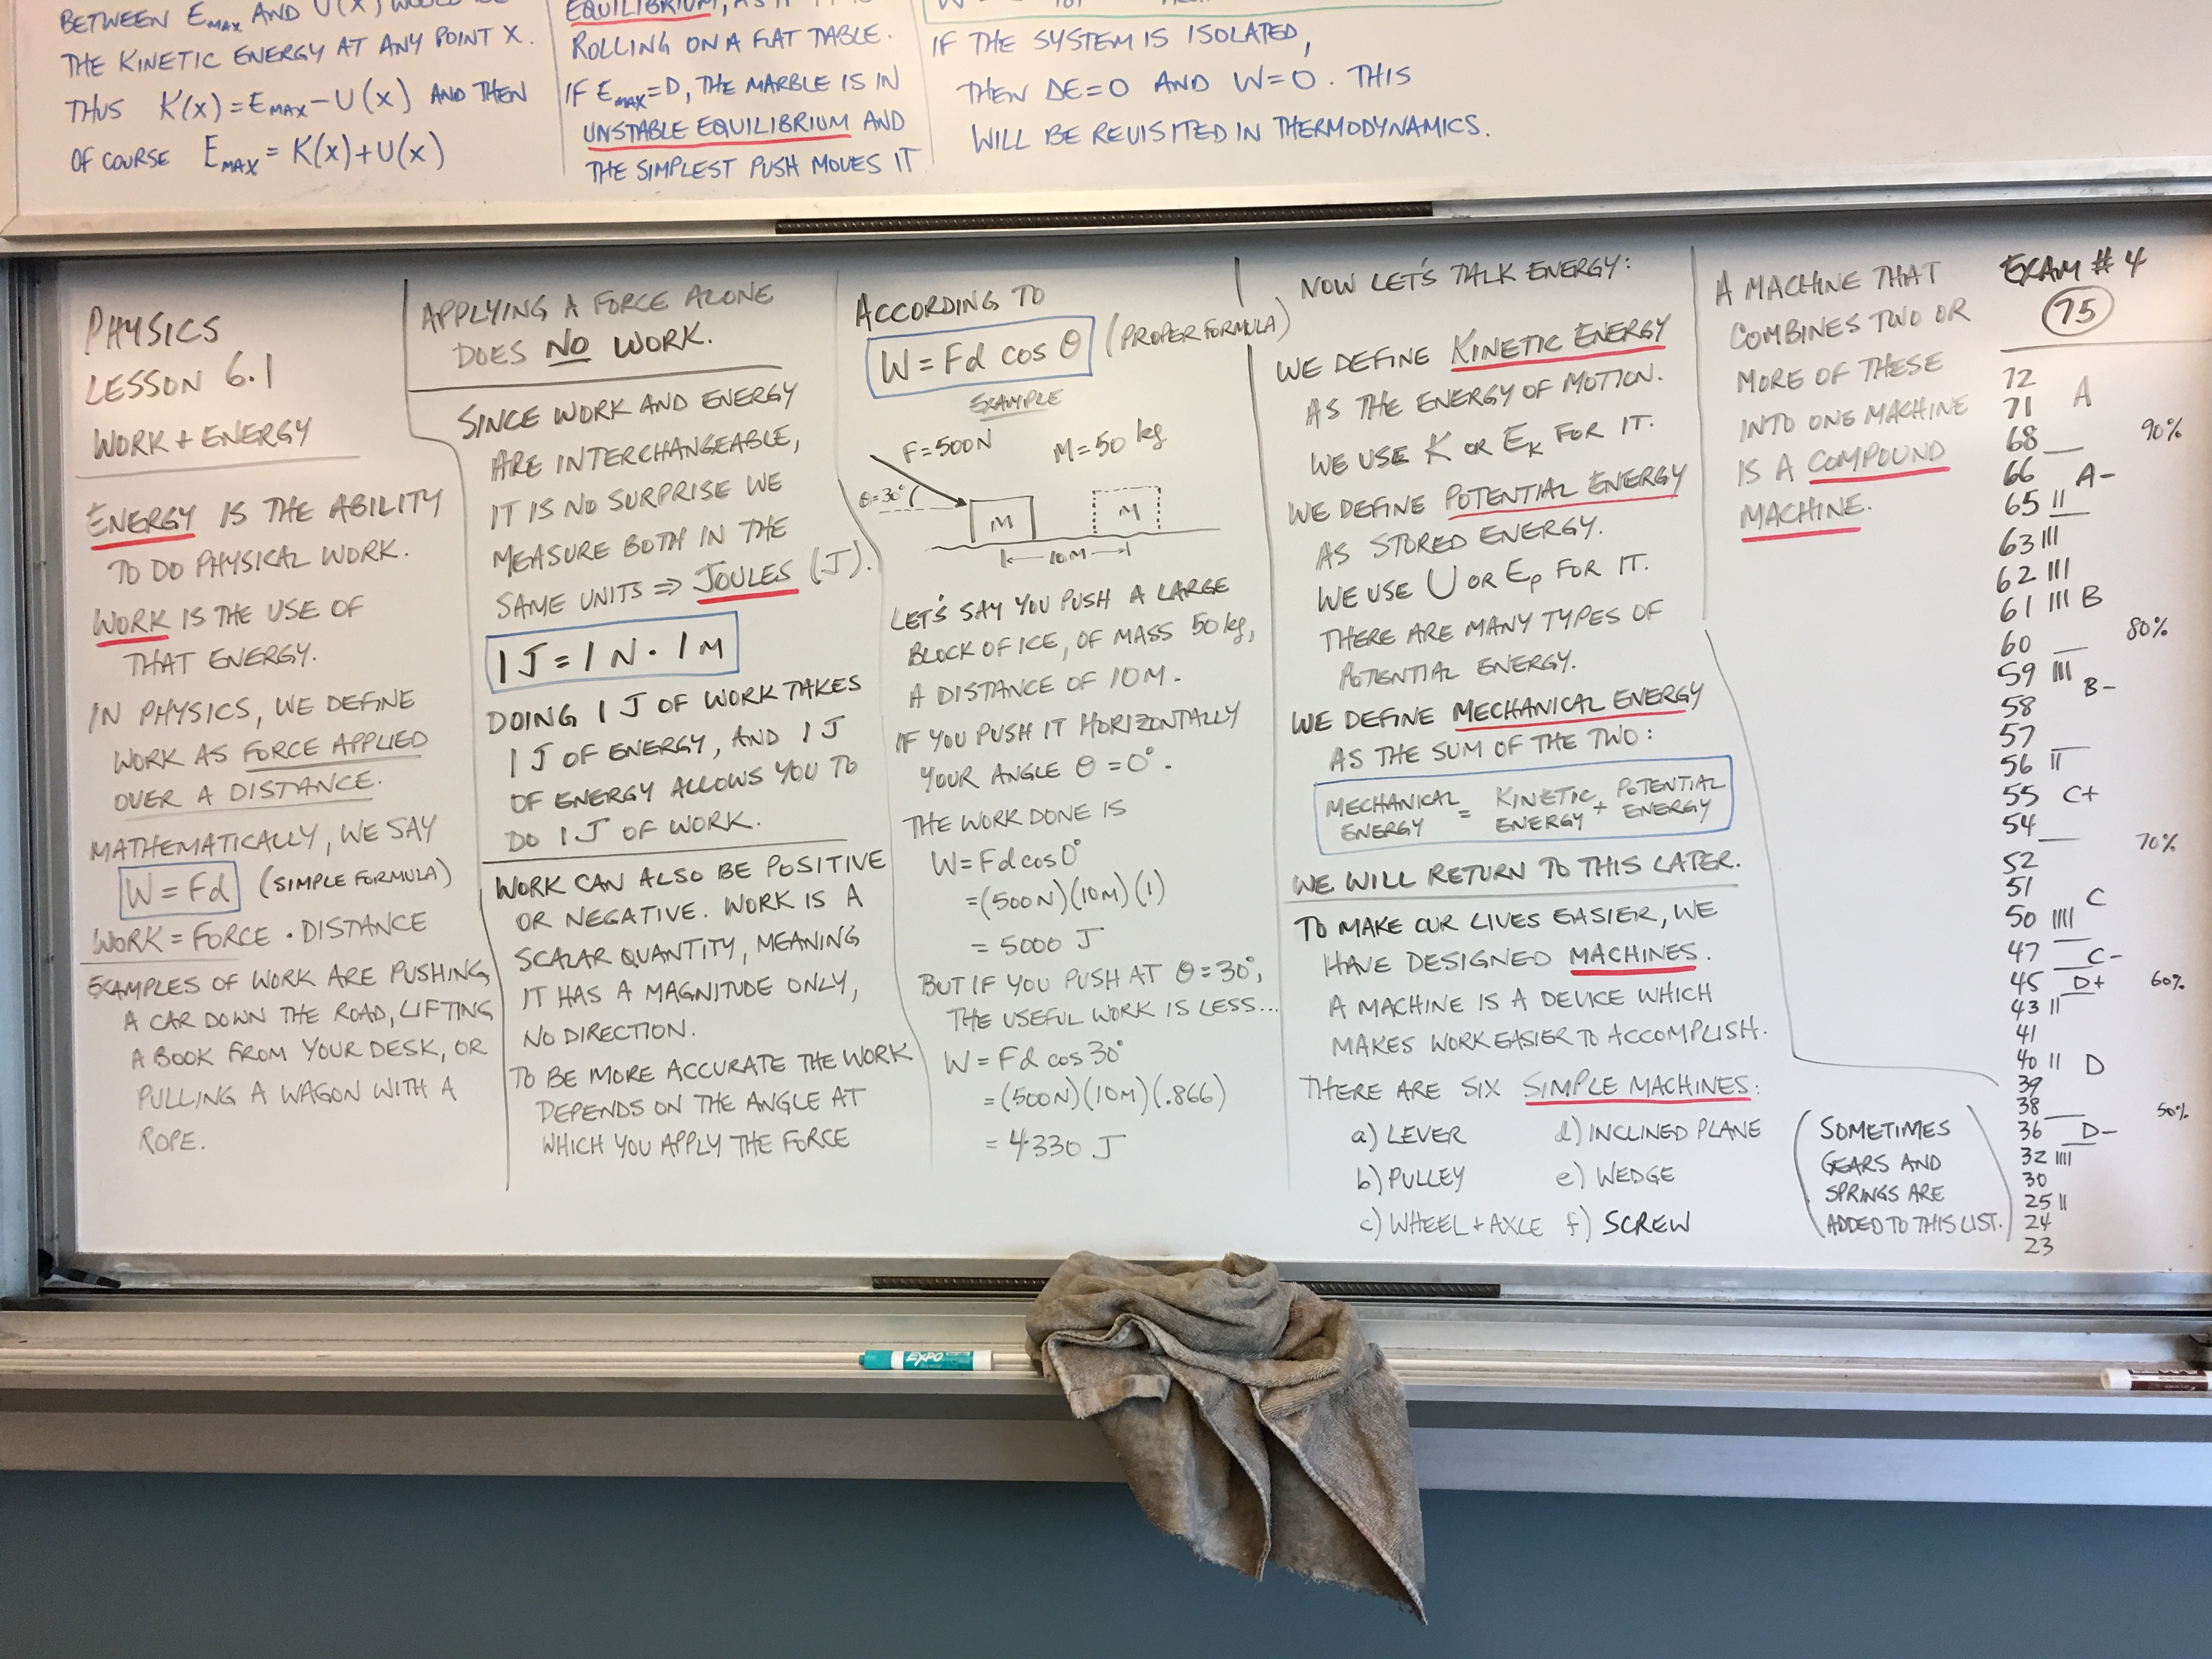 BETWEEN EMAX AND U(X) WOULD BE
THE KINETIC ENERGY AT ANY POINT X.
THUS K(X) = EMAX - U(X) AND THEN
OF COURSE EMAX = K(X) + U(X)
EQUILIBRIUM, AS IF IT IS
ROLLING ON A FLAT TABLE.
IF EMAX = D, THE MARBLE IS IN
UNSTABLE EQUILIBRIUM AND
THE SIMPLEST PUSH MOVES IT
IF THE SYSTEM IS ISOLATED,
THEN ΔE=0 AND W=0. THIS
WILL BE REVISITED IN THERMODYNAMICS.
PHYSICS
LESSON 6.1
WORK + ENERGY
ENERGY IS THE ABILITY
TO DO PHYSICAL WORK.
WORK IS THE USE OF
THAT ENERGY.
IN PHYSICS, WE DEFINE
WORK AS FORCE APPLIED
OVER A DISTANCE.
MATHEMATICALLY, WE SAY
W = Fd (SIMPLE FORMULA)
WORK = FORCE · DISTANCE
EXAMPLES OF WORK ARE PUSHING
A CAR DOWN THE ROAD, LIFTING
A BOOK FROM YOUR DESK, OR
PULLING A WAGON WITH A
ROPE.
APPLYING A FORCE ALONE
DOES NO WORK.
SINCE WORK AND ENERGY
ARE INTERCHANGEABLE,
IT IS NO SURPRISE WE
MEASURE BOTH IN THE
SAME UNITS ⇒ JOULES (J).
1 J = 1 N · 1 M
DOING 1 J OF WORK TAKES
1 J OF ENERGY, AND 1 J
OF ENERGY ALLOWS YOU TO
DO 1 J OF WORK.
WORK CAN ALSO BE POSITIVE
OR NEGATIVE. WORK IS A
SCALAR QUANTITY, MEANING
IT HAS A MAGNITUDE ONLY,
NO DIRECTION.
TO BE MORE ACCURATE THE WORK
DEPENDS ON THE ANGLE AT
WHICH YOU APPLY THE FORCE
ACCORDING TO
W = Fd cos θ (PROPER FORMULA)
EXAMPLE
F = 500N M = 50 kg
θ=30°
M M
10M
LET'S SAY YOU PUSH A LARGE
BLOCK OF ICE, OF MASS 50 kg,
A DISTANCE OF 10M.
IF YOU PUSH IT HORIZONTALLY
YOUR ANGLE θ = 0°.
THE WORK DONE IS
W = Fd cos 0°
= (500N)(10M)(1)
= 5000 J
BUT IF YOU PUSH AT θ = 30°,
THE USEFUL WORK IS LESS...
W = Fd cos 30°
= (500N)(10M)(.866)
= 4330 J
NOW LET'S TALK ENERGY:
WE DEFINE KINETIC ENERGY
AS THE ENERGY OF MOTION.
WE USE K OR EK FOR IT.
WE DEFINE POTENTIAL ENERGY
AS STORED ENERGY.
WE USE U OR EP FOR IT.
THERE ARE MANY TYPES OF
POTENTIAL ENERGY.
WE DEFINE MECHANICAL ENERGY
AS THE SUM OF THE TWO:
MECHANICAL ENERGY = KINETIC ENERGY + POTENTIAL ENERGY
WE WILL RETURN TO THIS LATER.
TO MAKE OUR LIVES EASIER, WE
HAVE DESIGNED MACHINES.
A MACHINE IS A DEVICE WHICH
MAKES WORK EASIER TO ACCOMPLISH.
THERE ARE SIX SIMPLE MACHINES:
a) LEVER d) INCLINED PLANE
b) PULLEY e) WEDGE
c) WHEEL + AXLE f) SCREW
(SOMETIMES
GEARS AND
SPRINGS ARE
ADDED TO THIS LIST.)
A MACHINE THAT
COMBINES TWO OR
MORE OF THESE
INTO ONE MACHINE
IS A COMPOUND
MACHINE.
EXAM # 4
75
72
71 A
68 90%
66 A-
65 II
63 III
62 III
61 III B
60 80%
59 III
B-
58
57
56 II
55 C+
54
70%
52
51
C
50 IIII
47 C-
45 D+ 60%
43 II
41
40 II D
39
38 50%
36 D-
32 IIII
30
25 II
24
23
EXPO